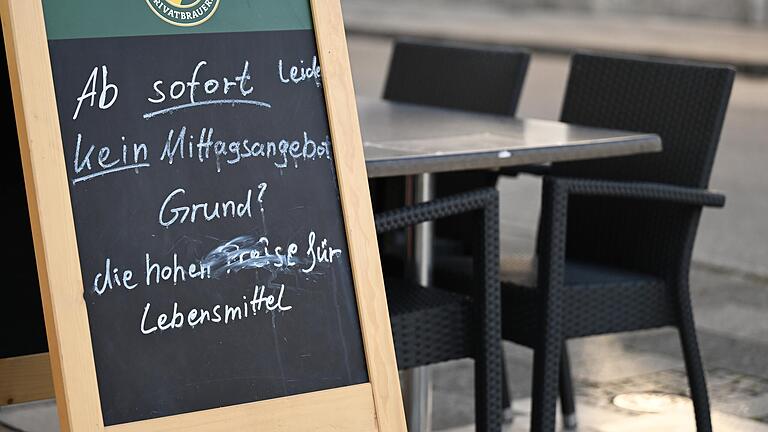 PRIVATBRAUEREI
Ab sofort leider
kein Mittagsangebot
Grund?
die hohen Preise für
Lebensmittel